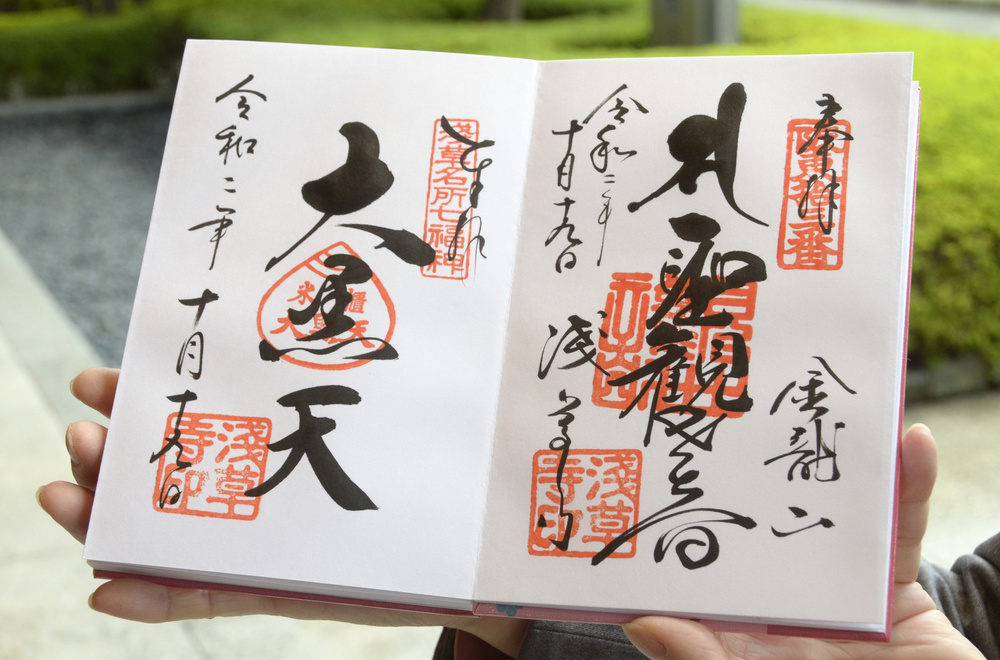 奉拝
阪東拾三番
金龍山
聖観世音
令和二年
十月十九日
淺草寺
淺草寺印
奉拝
淺草名所七福神
大黒天
令和二年十月十九日
淺草寺印